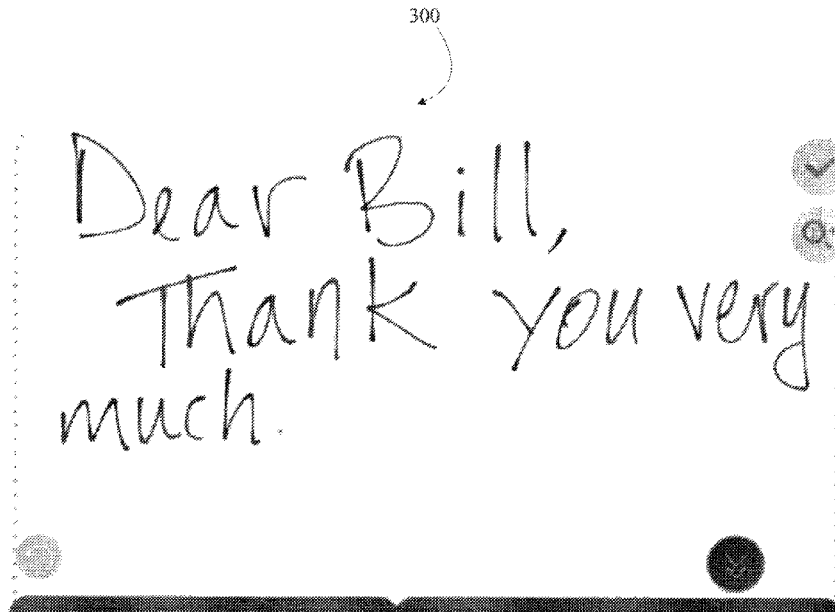 300
Dear Bill,
Thank you very
much.